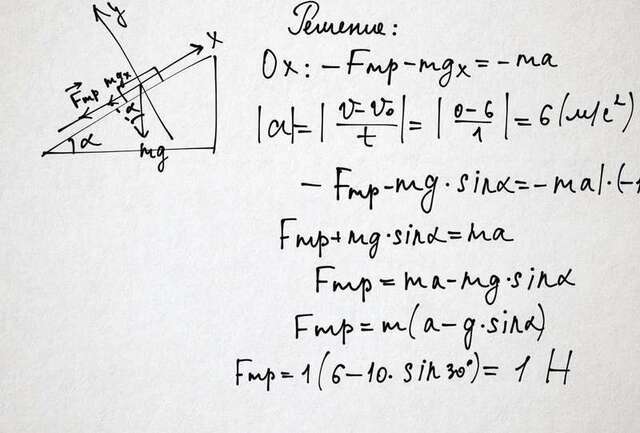 y
x
mgx
Fтр
α
α
mg
Решение:
Ox: -Fтр-mgx=-ma
|a|=|v-v₀/t|=|0-6/1|=6(м/с²)
-Fтр-mg·sinα=-ma|·(-1
Fтр+mg·sinα=ma
Fтр=ma-mg·sinα
Fтр=m(a-g·sinα)
Fтр=1(6-10·sin30°)=1 H